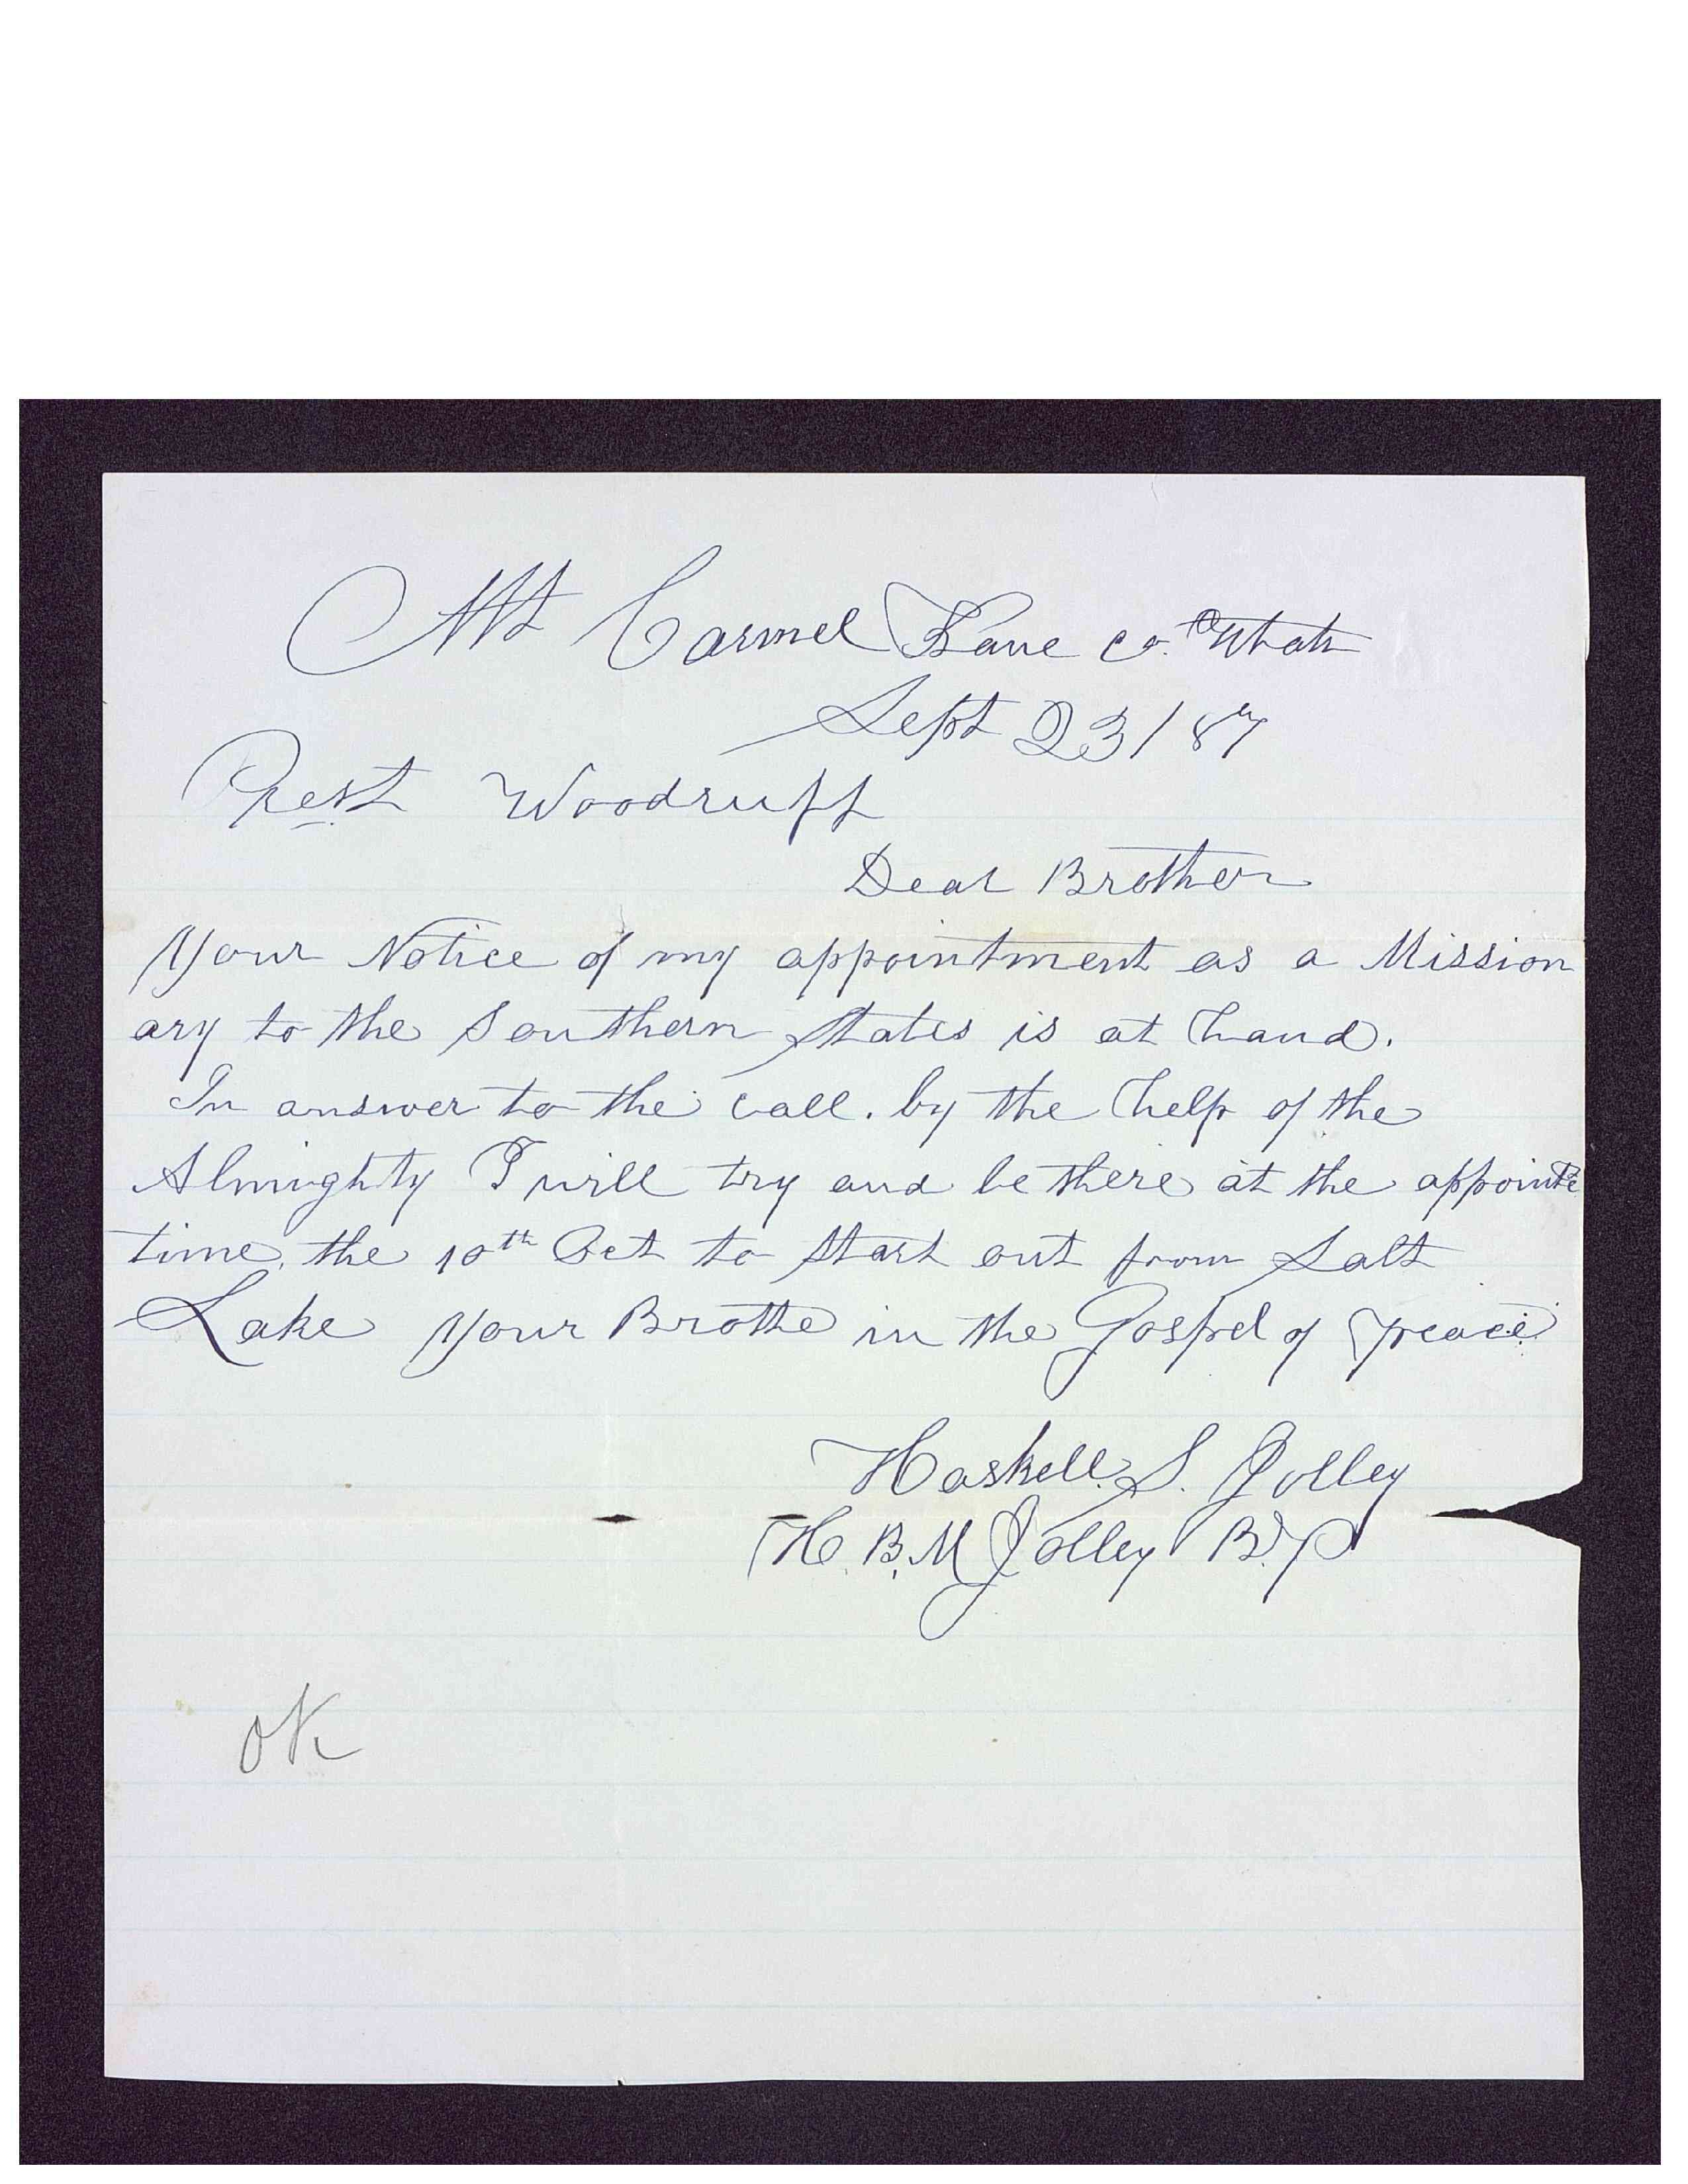 Mt Carmel Kane co. Utah
Sept 23/87
Prest Woodruff
Dear Brother
Your Notice of my appointment as a Mission
ary to the Southern States is at hand.
In answer to the call. by the help of the
Almighty I will try and be there at the appointe
time, the 10th Oct to start out from Salt
Lake Your Brothe in the Gospel of peace
Haskell. S. Jolley
H. B. M Jolley B.P
OK